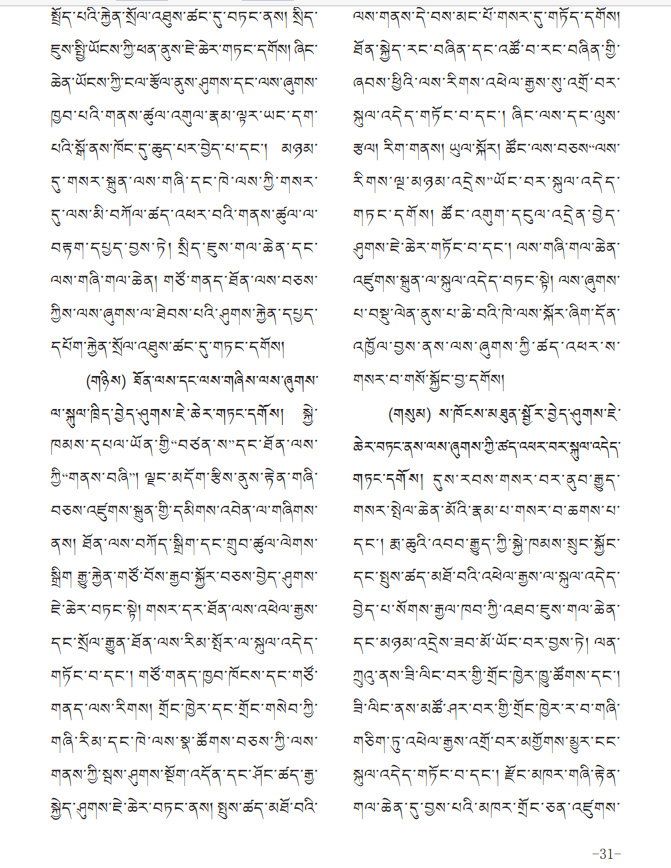 སྤྲོད་པའི་རྐྱེན་སྲོལ་འཐུས་ཚང་དུ་བཏང་ནས། སྲིད་
ཇུས་སྤྱི་ཡོངས་ཀྱི་ཕན་ནུས་ཇེ་ཆེར་གཏང་དགོས། ཞིང་
ཆེན་ཡོངས་ཀྱི་ངལ་རྩོལ་ནུས་ཤུགས་དང་ལས་ཞུགས་
ཁྱབ་པའི་གནས་ཚུལ་འགུལ་རྣམ་ལྟར་ཡང་དག་
པའི་སྒོ་ནས་ཁོང་དུ་ཆུད་པར་བྱེད་པ་དང་། མཉམ་
དུ་གསར་སྐྲུན་ལས་གཞི་དང་ཁེ་ལས་ཀྱི་གསར་
དུ་ལས་མི་བཀོལ་ཚད་འཕར་བའི་གནས་ཚུལ་ལ་
བརྟག་དཔྱད་བྱས་ཏེ། སྲིད་ཇུས་གལ་ཆེན་དང་
ལས་གཞི་གལ་ཆེན། གཙོ་གནད་ཐོན་ལས་བཅས་
ཀྱིས་ལས་ཞུགས་ལ་ཐེབས་པའི་ཤུགས་རྐྱེན་དཔྱད་
དཔོག་རྐྱེན་སྲོལ་འཐུས་ཚང་དུ་གཏང་དགོས།
(གཉིས) ཐོན་ལས་དང་ལས་གཞིས་ལས་ཞུགས་
ལ་སྐུལ་ཁྲིད་བྱེད་ཤུགས་ཇེ་ཆེར་གཏང་དགོས། སྐྱེ་
ཁམས་དཔལ་ཡོན་གྱི“བཙན་ས”དང་ཐོན་ལས་
ཀྱི“གནས་བཞི”། ལྗང་མདོག་རྩིས་ནུས་རྟེན་གཞི་
བཅས་འཛུགས་སྐྲུན་གྱི་དམིགས་འབེན་ལ་གཞིགས་
ནས། ཐོན་ལས་བཀོད་སྒྲིག་དང་གྲུབ་ཚུལ་ལེགས་
སྒྲིག་རྒྱུ་རྐྱེན་གཙོ་བོས་རྒྱབ་སྐྱོར་བཅས་བྱེད་ཤུགས་
ཇེ་ཆེར་བཏང་སྟེ། གསར་དར་ཐོན་ལས་འཕེལ་རྒྱས་
དང་སྲོལ་རྒྱུན་ཐོན་ལས་རིམ་སྤོར་ལ་སྐུལ་འདེད་
གཏོང་བ་དང་། གཙོ་གནད་ཁྱབ་ཁོངས་དང་གཙོ་
གནད་ལས་རིགས། གྲོང་ཁྱེར་དང་གྲོང་གསེབ་ཀྱི་
གཞི་རིམ་དང་ཁེ་ལས་སྣ་ཚོགས་བཅས་ཀྱི་ལས་
གནས་ཀྱི་སྦས་ཤུགས་སྔོག་འདོན་དང་ཤོང་ཚད་རྒྱ་
སྐྱེད་ཤུགས་ཇེ་ཆེར་བཏང་ནས། སྤུས་ཚད་མཐོ་བའི་
ལས་གནས་དེ་བས་མང་པོ་གསར་དུ་གཏོད་དགོས།
ཐོན་སྐྱེད་རང་བཞིན་དང་འཚོ་བ་རང་བཞིན་གྱི་
ཞབས་ཕྱིའི་ལས་རིགས་འཕེལ་རྒྱས་སུ་འགྲོ་བར་
སྐུལ་འདེད་གཏོང་བ་དང་། ཞིང་ལས་དང་ལུས་
རྩལ། རིག་གནས། ཡུལ་སྐོར། ཚོང་ལས་བཅས“ལས་
རིགས་ལྔ་མཉམ་འདྲེས”ཡོང་བར་སྐུལ་འདེད་
གཏང་དགོས། ཚོང་འགུག་དངུལ་འདྲེན་བྱེད་
ཤུགས་ཇེ་ཆེར་གཏོང་བ་དང་། ལས་གཞི་གལ་ཆེན་
འཛུགས་སྐྲུན་ལ་སྐུལ་འདེད་བཏང་སྟེ། ལས་ཞུགས་
པ་བསྡུ་ལེན་ནུས་པ་ཆེ་བའི་ཁེ་ལས་སྐོར་ཞིག་དོན་
འཁྱོལ་བྱས་ནས་ལས་ཞུགས་ཀྱི་ཚད་འཕར་ས་
གསར་བ་གསོ་སྐྱོང་བྱ་དགོས།
(གསུམ) ས་ཁོངས་མཐུན་སྦྱོར་བྱེད་ཤུགས་ཇེ་
ཆེར་བཏང་ནས་ལས་ཞུགས་ཀྱི་ཚད་འཕར་བར་སྐུལ་འདེད་
གཏང་དགོས། དུས་རབས་གསར་བར་ནུབ་རྒྱུད་
གསར་སྤེལ་ཆེན་མོའི་རྣམ་པ་གསར་བ་ཆགས་པ་
དང་། རྨ་ཆུའི་འབབ་རྒྱུད་ཀྱི་སྐྱེ་ཁམས་སྲུང་སྐྱོང་
དང་སྤུས་ཚད་མཐོ་བའི་འཕེལ་རྒྱས་ལ་སྐུལ་འདེད་
བྱེད་པ་སོགས་རྒྱལ་ཁབ་ཀྱི་འཐབ་ཇུས་གལ་ཆེན་
དང་མཉམ་འདྲེས་ཟབ་མོ་ཡོང་བར་བྱས་ཏེ། ལན་
ཀྲུའུ་ནས་ཟི་ལིང་བར་གྱི་གྲོང་ཁྱེར་ཁྱུ་ཚོགས་དང་།
ཟི་ལིང་ནས་མཚོ་ཤར་བར་གྱི་གྲོང་ཁྱེར་ར་བ་གཞི་
གཅིག་ཏུ་འཕེལ་རྒྱས་འགྲོ་བར་མགྱོགས་མྱུར་ངང་
སྐུལ་འདེད་གཏོང་བ་དང་། རྫོང་མཁར་གཞི་རྟེན་
གལ་ཆེན་དུ་བྱས་པའི་མཁར་གྲོང་ཅན་འཛུགས་
-31-